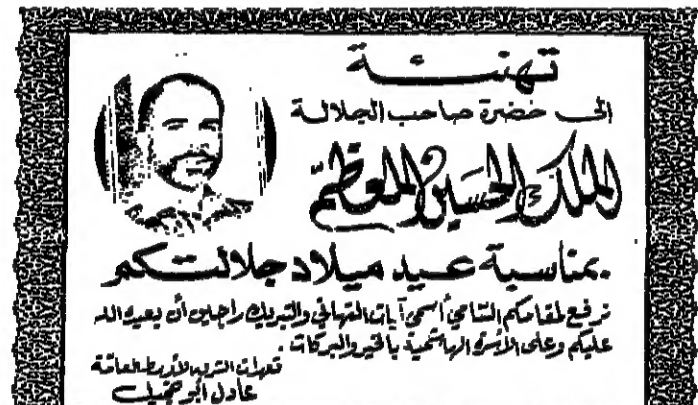 تهنئة
الى حضرة صاحب الجلالة
الملك الحسين المعظم
بمناسبة عيد ميلاد جلالتكم
نرفع لمقامكم السامي أسمى آيات التهاني والتبريك راجين أن يعيده الله
عليكم وعلى الأسرة الهاشمية بالخير والبركات .
الشرق الأوسط العامة
عادل أبو